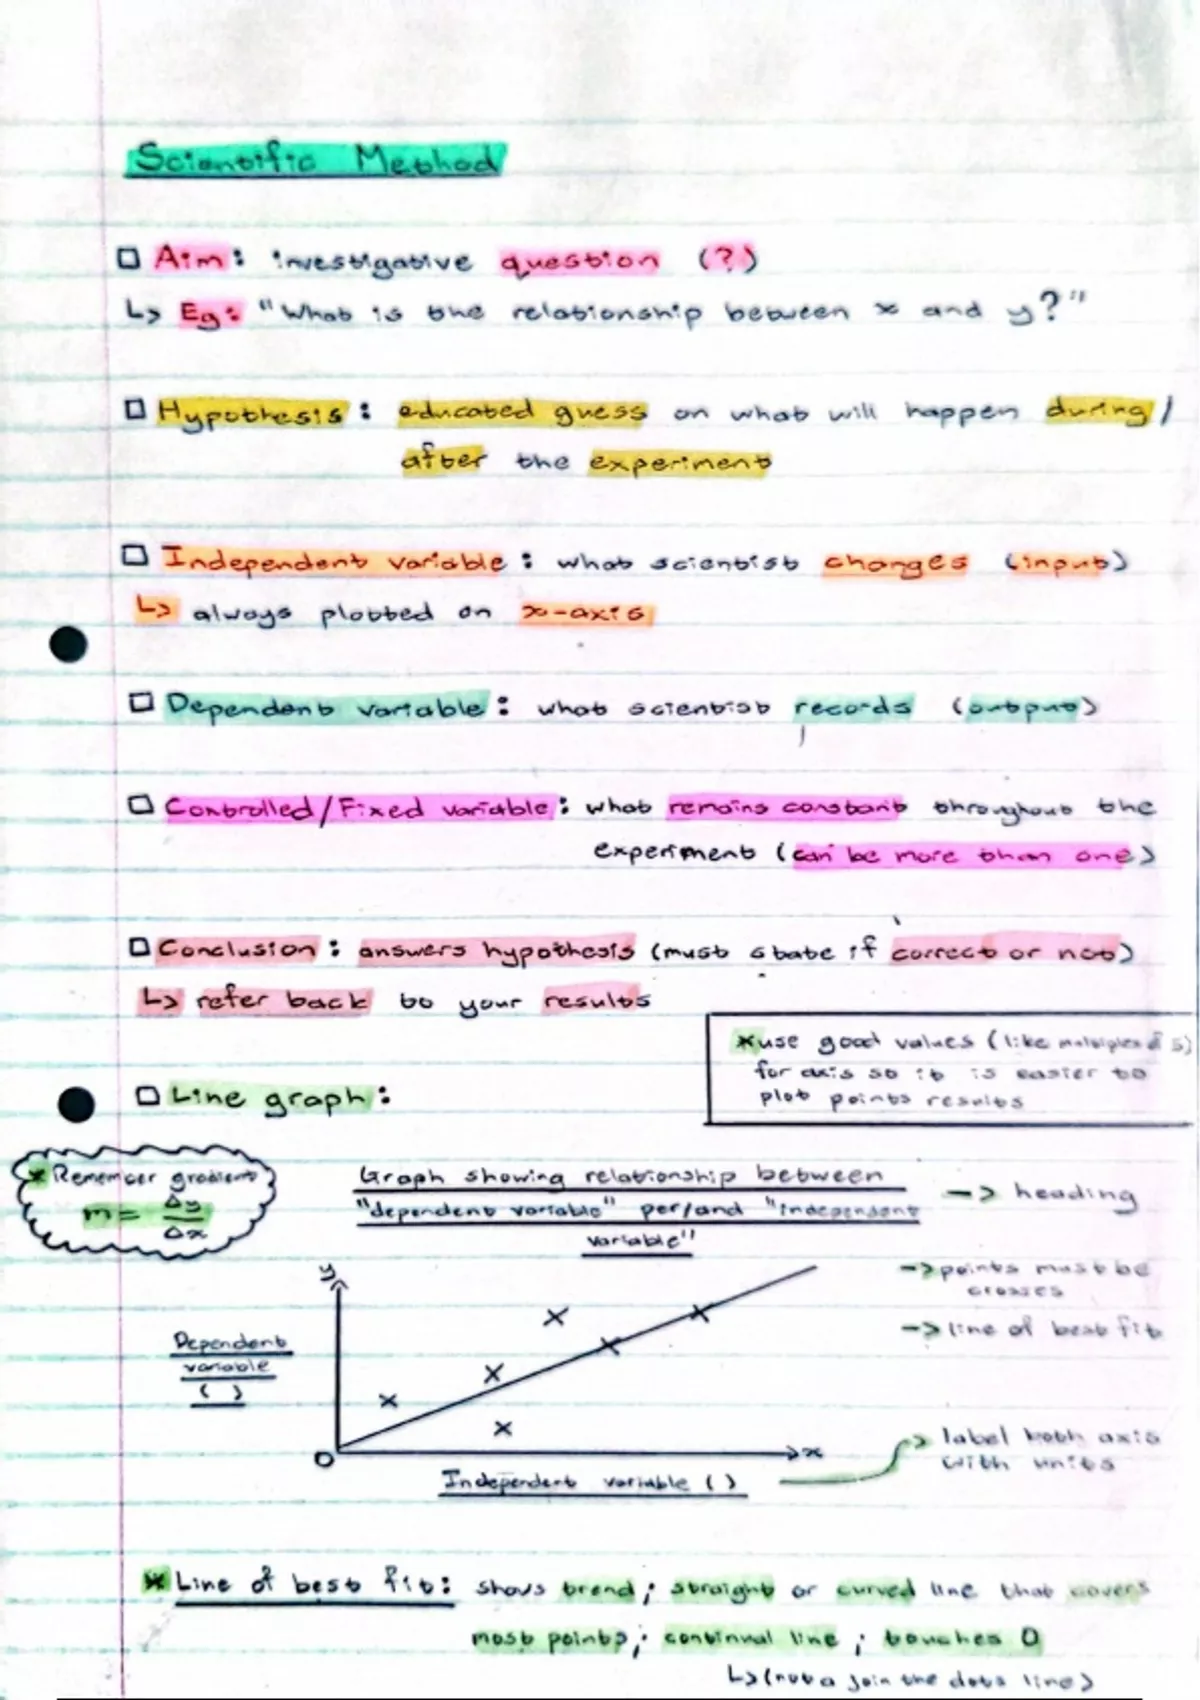 Scientific Method
□ Aim: investigative question (?)
↳ Eg: "What is the relationship between x and y?"
□ Hypothesis: educated guess on what will happen during/
after the experiment
□ Independent variable: what scientist changes (input)
↳ always plotted on x-axis
□ Dependent variable: what scientist records (output)
□ Controlled/Fixed variable: what remains constant throughout the
experiment (can be more than one)
□ Conclusion: answers hypothesis (must state if correct or not)
↳ refer back to your results
*use good values (like multiples of 5)
for axis so it is easier to
plot points results
□ Line graph:
* Remember gradient
m = Δy
Δx
Graph showing relationship between
"dependent variable" per/and "independent
variable"
-> heading
y
-> points must be
crosses
-> line of best fit
Dependent
variable
( )
O
x
Independent variable ( )
-> label both axis
with units
* Line of best fit: shows trend; straight or curved line that covers
most points; continual line; touches 0
↳ (not a join the dots line)